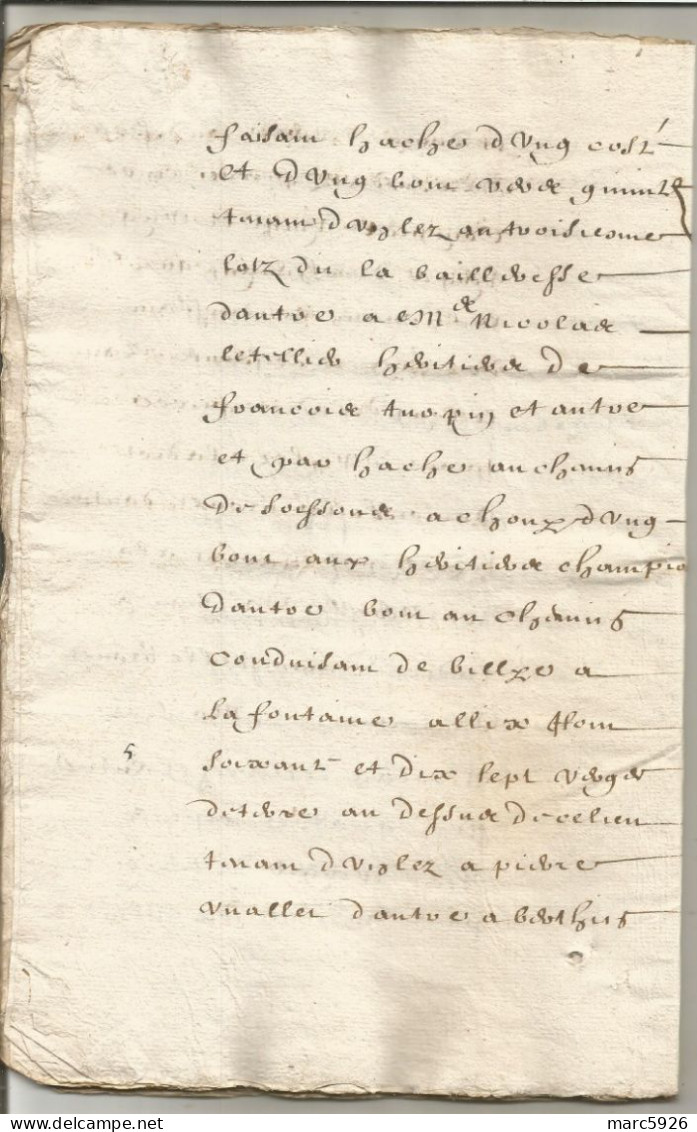 faisant hache d'ung costé
et d'ung bout vers
tenant d'ung lez au troisiesme
lotz du la bailleresse
d'autre a Mᵉ Nicolas
letellier heritier de
francois turpin et autre
et par hache au chemin
de soessons a choux d'ung
bout aux heritiers champio
d'autre bout au chemin
conduisant de billye a
la fontaine allix
5 soixant et dix sept verges
de terre au dessus de ce lieu
tenant d'ung lez a pierre
vuallet d'autre a berthin
marc5926